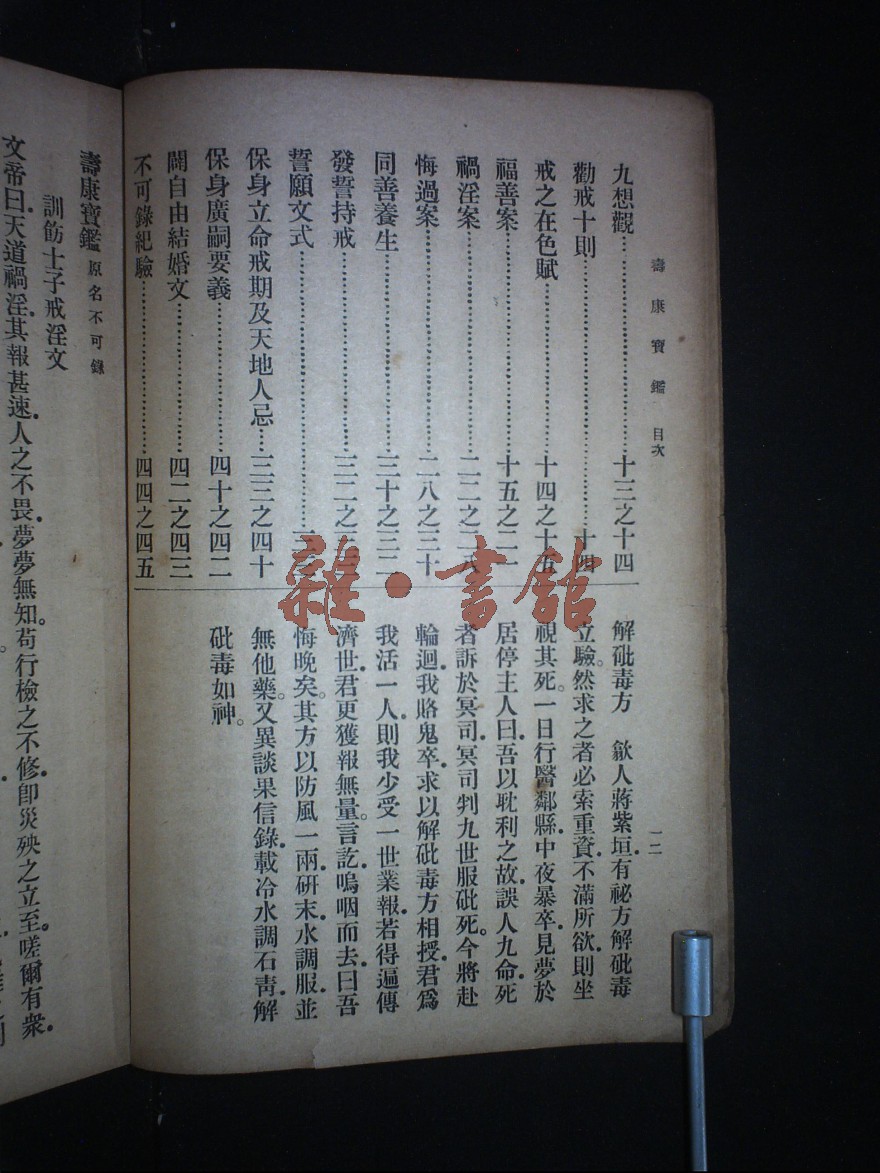 壽康寶鑑 目次
一二
九想觀…十三之十四
勸戒十則…十四
戒之在色賦…十四之十五
福善案…十五之二一
禍淫案…二二之二八
悔過案…二八之三十
同善養生…三十之三二
發誓持戒…三二之三三
誓願文式…三三
保身立命戒期及天地人忌…三三之四十
保身廣嗣要義…四十之四二
闢自由結婚文…四二之四三
不可錄紀驗…四四之四五
解砒毒方 歙人蔣紫垣.有祕方解砒毒
立驗。然求之者必索重資.不滿所欲.則坐
視其死。一日行醫鄰縣.中夜暴卒.見夢於
居停主人曰.吾以耽利之故.誤人九命.死
者訴於冥司.冥司判九世服砒死。今將赴
輪迴.我賂鬼卒.求以解砒毒方相授.君爲
我活一人.則我少受一世業報.若得遍傳
濟世.君更獲報無量。言訖.嗚咽而去.曰.吾
悔晚矣。其方以防風一兩.研末.水調服.並
無他藥。又異談果信錄.載冷水調石靑.解
砒毒如神。
壽康寶鑑 原名不可錄
訓飭士子戒淫文
文帝曰.天道禍淫.其報甚速.人之不畏.夢夢無知。苟行檢之不修.卽災殃之立至。嗟爾有衆.
雜·書館